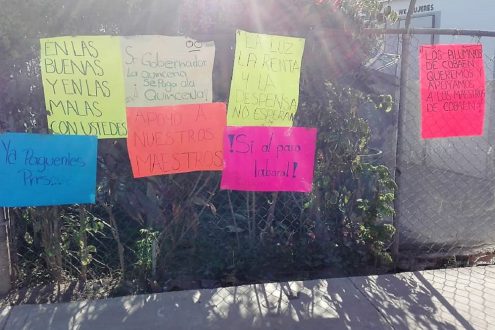 EN LAS
BUENAS
Y EN LAS
MALAS
CON USTEDES
Sr Gobernador
La Quincena
Se Paga a la
Quincena
LA LUZ
LA RENTA
Y LA
DESPENSA
NO ESPERAN
LOS ALUMNOS
DE COBAEH
QUEREMOS
APOYAMOS
A LOS MAESTROS
DE COBAEH
APOYO A
NUESTROS
MAESTROS
Ya Paguenles
¡Sí al paro
laboral!
MUJERES